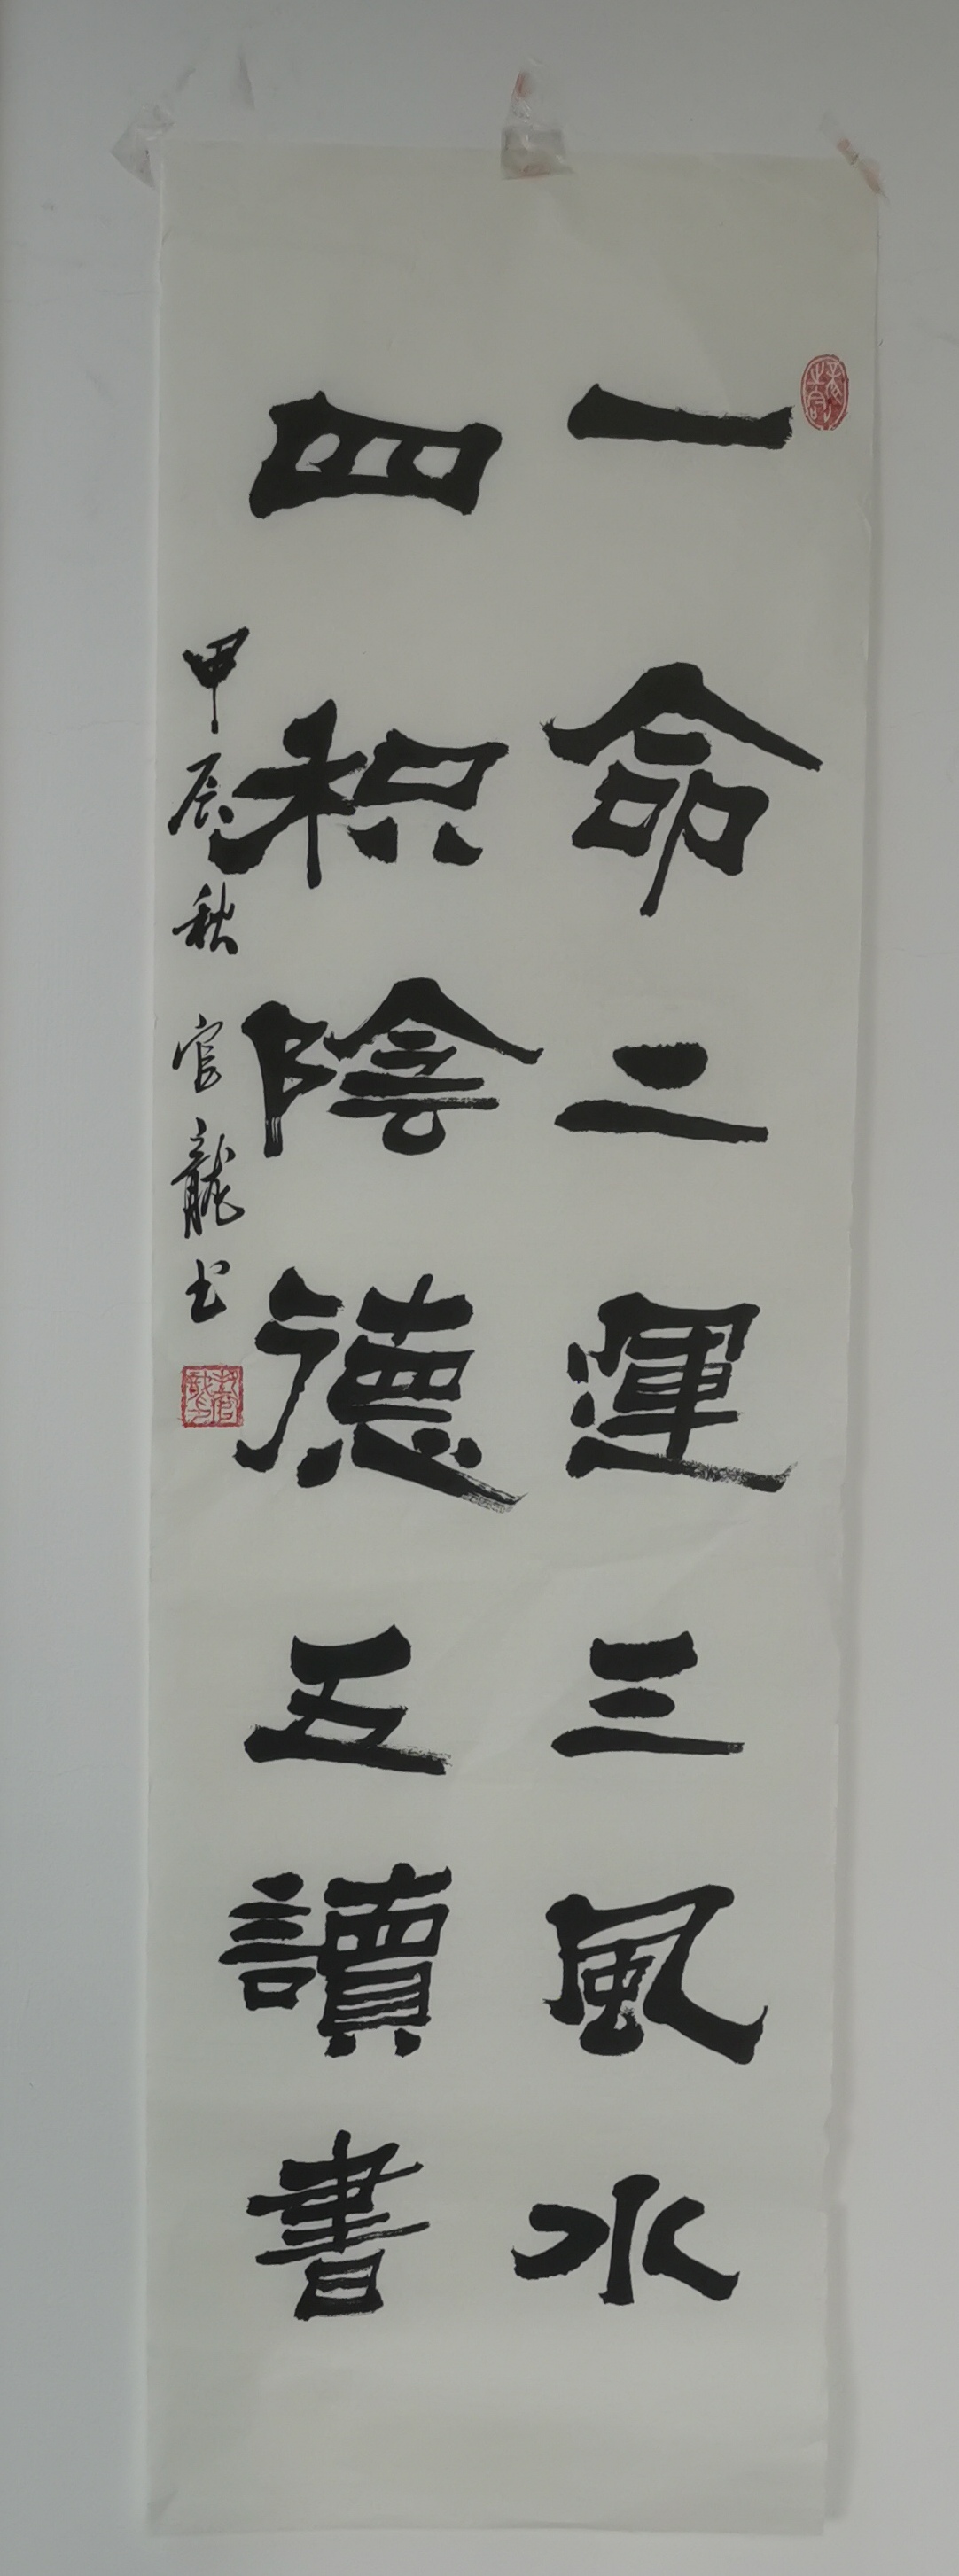 一命二運三風水
四积陰德五讀書
甲辰秋 官龍书